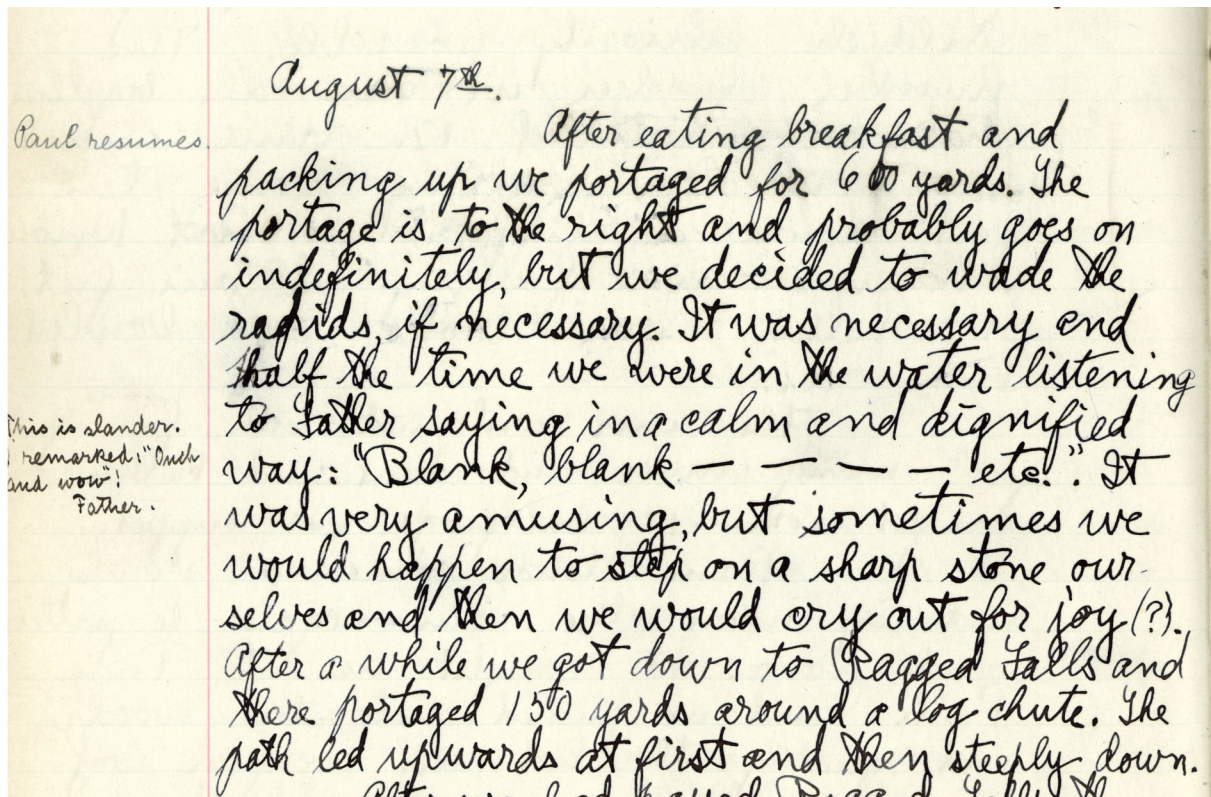 August 7th.
Paul resumes.
After eating breakfast and
packing up we portaged for 600 yards. The
portage is to the right and probably goes on
indefinitely, but we decided to wade the
rapids, if necessary. It was necessary and
half the time we were in the water listening
to Father saying in a calm and dignified
way: "Blank, blank — — — — etc.". It
was very amusing, but sometimes we
would happen to step on a sharp stone our-
selves and then we would cry out for joy (?).
After a while we got down to Ragged Falls and
there portaged 150 yards around a log chute. The
path led upwards at first and then steeply down.
After we had passed Ragged Falls the
This is slander.
I remarked: "Ouch
and wow"!
Father.